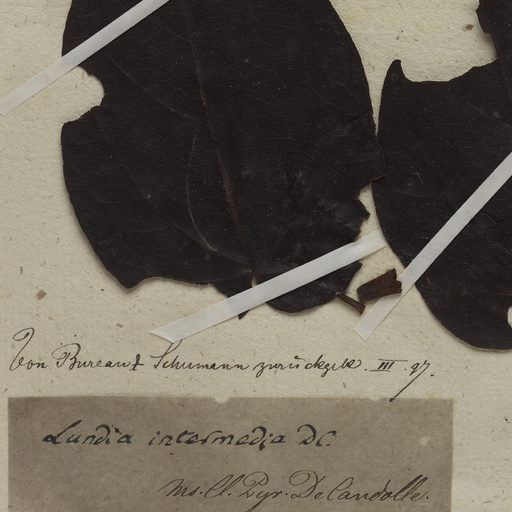 Von Bureau & Schumann zurückgek. III. 97.
Lundia intermedia DC.
ms. Cl. Pyr. DeCandolle.